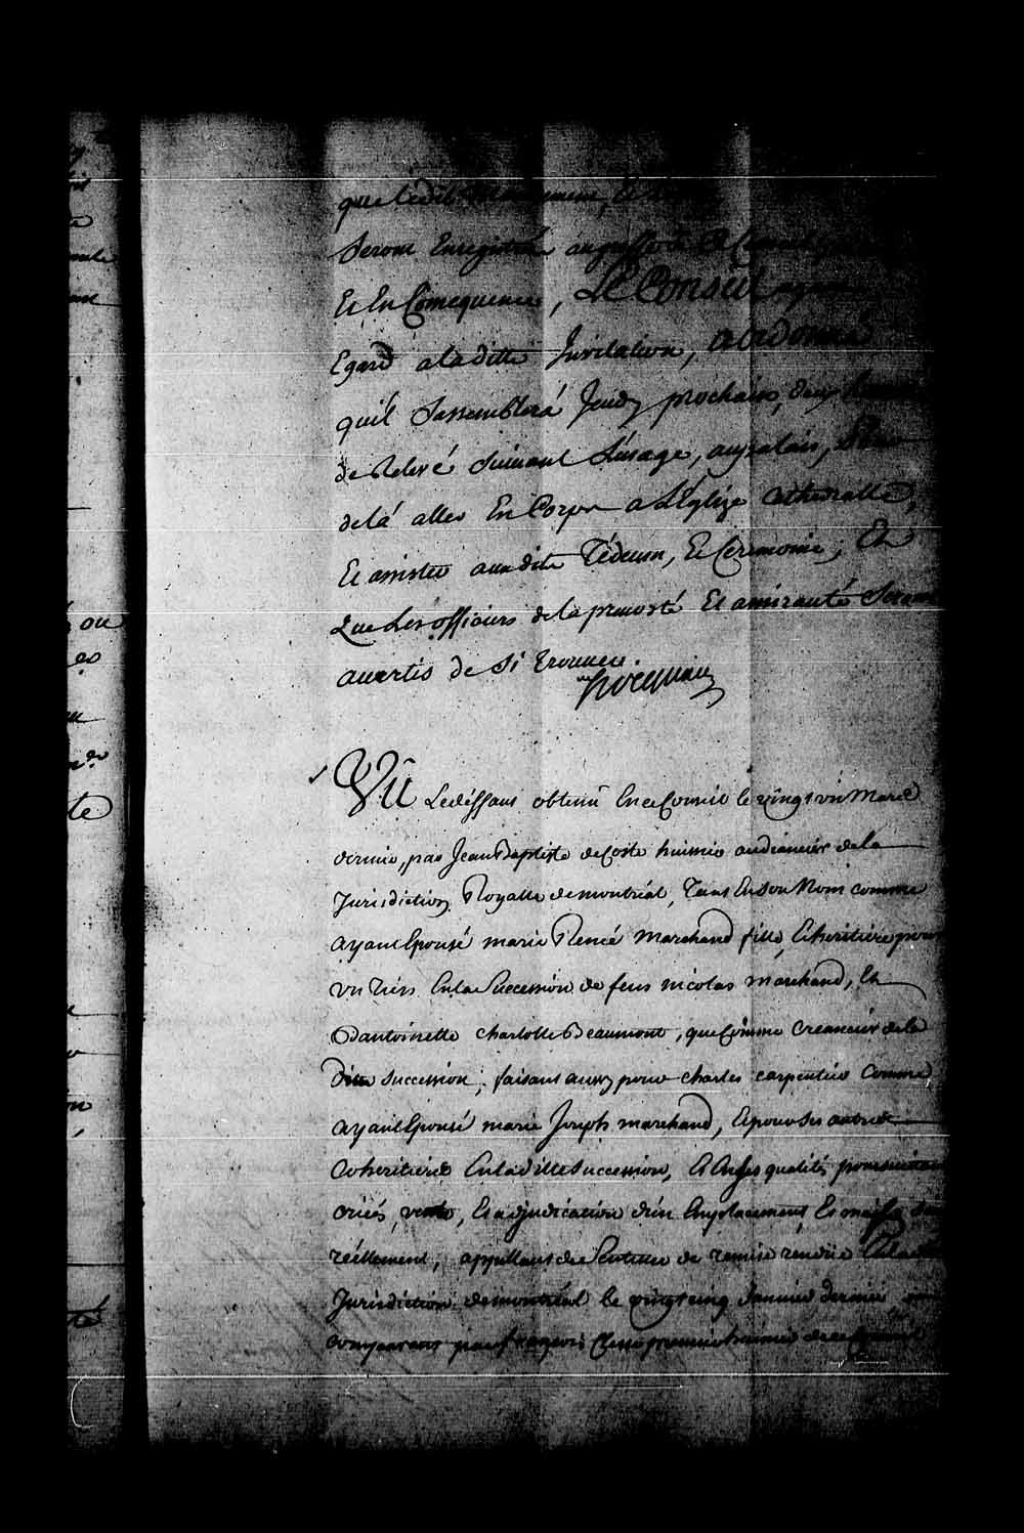 que ledit
Seront Enregistré au greffe
Et En Consequence, Le Conseil ayant
Egard a la ditte Invitation, a ordonné
quil Sassemblera Jeudy prochain, deux heures
de Relevé Suivant Lusage, au palais, Pour
de la aller En Corps a LEglize Cathedralle,
Et assister audit Tédeum, Et Ceremonie, Et
Que Les officiers de la prevosté Et amirauté Seront
avertis de Si trouver.
hocquart
Vû Le deffaut obtenu En ce Conseil le vingt un Mars
dernier, par Jean Baptiste deCoste huissier audiancier de la
Jurisdiction Royalle de montréal, Tant En Son Nom comme
ayant Epousé marie Renée Marchand fille, Et heritiere pour
un tiers En la Succession de feus nicolas Marchand, Et
Dantoinette charlotte Beaumont, que Comme Creancier de la
ditte Succession, faisant aussy pour charles carpentier Comme
ayant Epousé marie Joseph marchand, Et pour Ses autres
Coheritiers En la ditte Succession, Et En Ses qualités poursuivant
criés, vente, Et adjudication d'un Emplacement, Et maison
réellement, appellant de Sentence de remise rendüe En la
Jurisdiction de montréal le vingt cinq Janvier dernier
comparant par françois Clesse premier huissier de ce Conseil